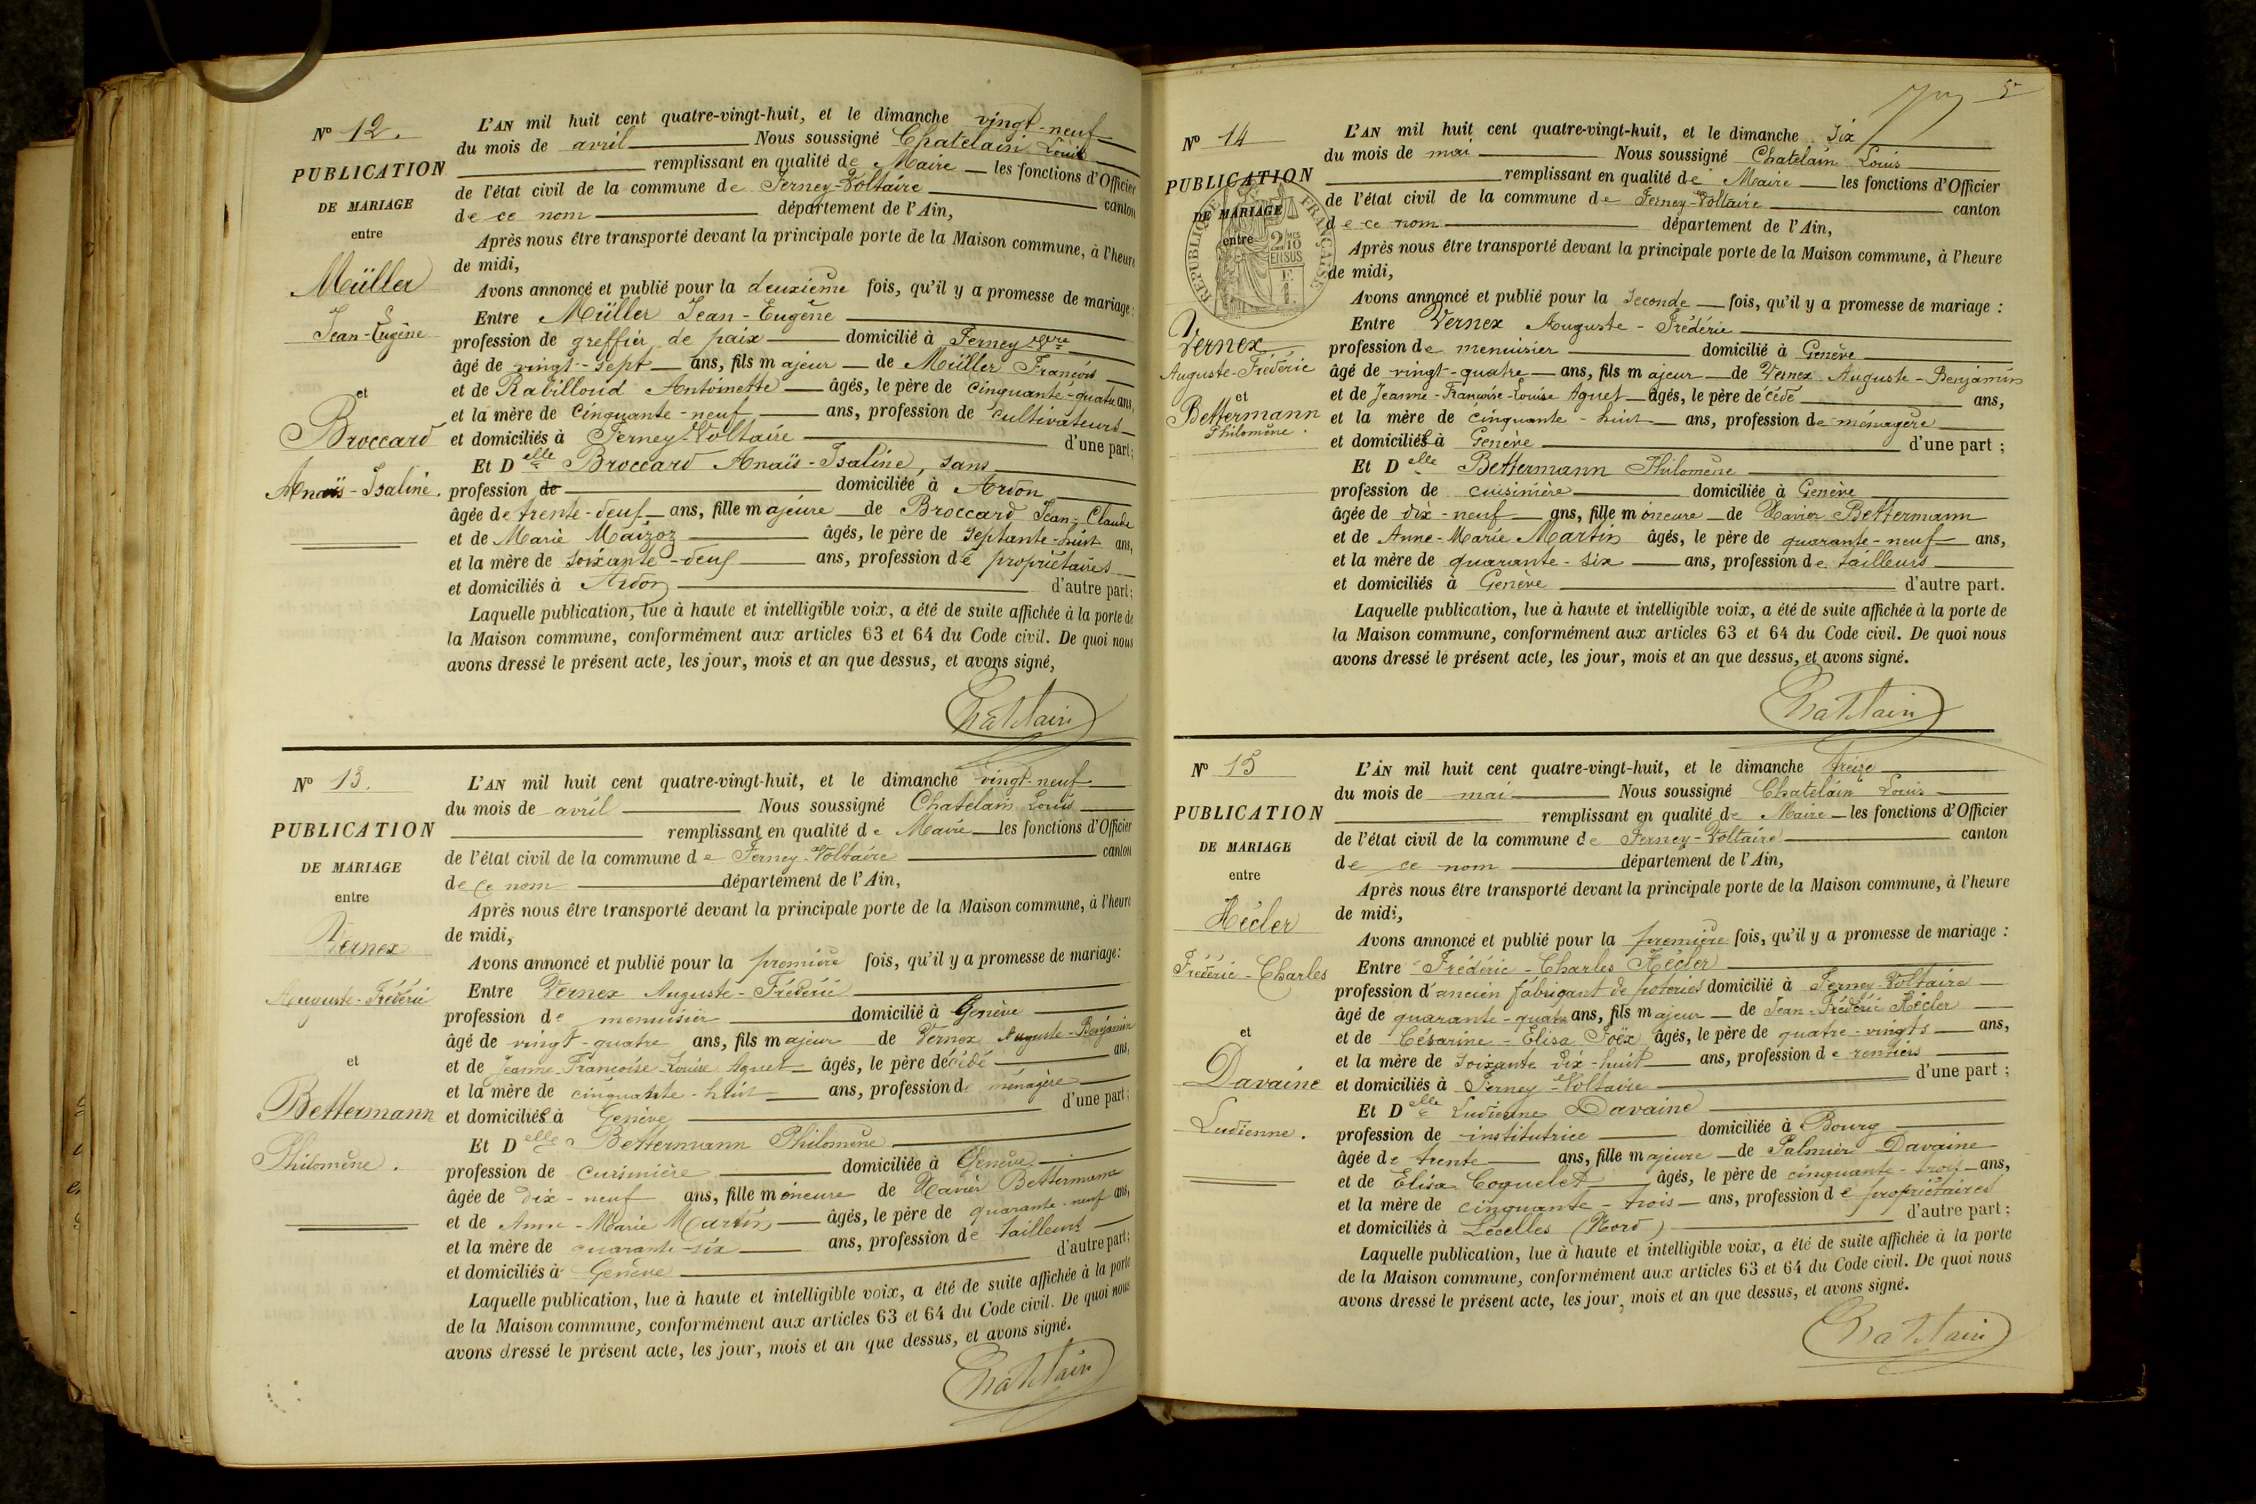 Nº 12.
PUBLICATION
DE MARIAGE
entre
Müller
Jean-Eugène
et
Broccard
Anaïs-Isaline.
L'AN mil huit cent quatre-vingt-huit, et le dimanche vingt-neuf
du mois de avril Nous soussigné Chatelain Louis
remplissant en qualité de Maire les fonctions d'Officier
de l'état civil de la commune de Ferney-Voltaire canton
de ce nom département de l'Ain,
Après nous être transporté devant la principale porte de la Maison commune, à l'heure
de midi,
Avons annoncé et publié pour la deuxième fois, qu'il y a promesse de mariage:
Entre Müller Jean-Eugène
profession de greffier de paix domicilié à Ferney Vre
âgé de vingt-sept ans, fils majeur de Müller François
et de Rabilloud Antoinette âgés, le père de cinquante-quatre ans,
et la mère de cinquante-neuf ans, profession de cultivateurs
et domiciliés à Ferney-Voltaire d'une part;
Et Delle Broccard Anaïs-Isaline, sans
profession de domiciliée à Ardon
âgée de trente-deux ans, fille majeure de Broccard Jean-Claude
et de Marie Maizoz âgés, le père de septante-huit ans,
et la mère de soixante-deux ans, profession de propriétaires
et domiciliés à Ardon d'autre part;
Laquelle publication, lue à haute et intelligible voix, a été de suite affichée à la porte de
la Maison commune, conformément aux articles 63 et 64 du Code civil. De quoi nous
avons dressé le présent acte, les jour, mois et an que dessus, et avons signé,
Chatelain
Nº 13.
PUBLICATION
DE MARIAGE
entre
Vernex
Auguste-Frédéric
et
Bettermann
Philomène.
L'AN mil huit cent quatre-vingt-huit, et le dimanche vingt-neuf
du mois de avril Nous soussigné Chatelain Louis
remplissant en qualité de Maire les fonctions d'Officier
de l'état civil de la commune de Ferney-Voltaire canton
de ce nom département de l'Ain,
Après nous être transporté devant la principale porte de la Maison commune, à l'heure
de midi,
Avons annoncé et publié pour la première fois, qu'il y a promesse de mariage:
Entre Vernex Auguste-Frédéric
profession de menuisier domicilié à Genève
âgé de vingt-quatre ans, fils majeur de Vernex Auguste-Benjamin
et de Jeanne-Françoise-Louise Aguet âgés, le père décédé ans,
et la mère de cinquante-huit ans, profession de ménagère
et domiciliés à Genève d'une part;
Et Delle Bettermann Philomène
profession de cuisinière domiciliée à Genève
âgée de dix-neuf ans, fille mineure de Xavier Bettermann
et de Anne-Marie Martin âgés, le père de quarante-neuf ans,
et la mère de quarante-six ans, profession de tailleurs
et domiciliés à Genève d'autre part;
Laquelle publication, lue à haute et intelligible voix, a été de suite affichée à la porte
de la Maison commune, conformément aux articles 63 et 64 du Code civil. De quoi nous
avons dressé le présent acte, les jour, mois et an que dessus, et avons signé.
Chatelain
5
Nº 14
PUBLICATION
DE MARIAGE
entre
RÉPUBLIQUE FRANÇAISE
2/10
EN SUS
Vernex
Auguste-Frédéric
et
Bettermann
Philomène.
L'AN mil huit cent quatre-vingt-huit, et le dimanche six
du mois de mai Nous soussigné Chatelain Louis
remplissant en qualité de Maire les fonctions d'Officier
de l'état civil de la commune de Ferney-Voltaire canton
de ce nom département de l'Ain,
Après nous être transporté devant la principale porte de la Maison commune, à l'heure
de midi,
Avons annoncé et publié pour la seconde fois, qu'il y a promesse de mariage :
Entre Vernex Auguste-Frédéric
profession de menuisier domicilié à Genève
âgé de vingt-quatre ans, fils majeur de Vernex Auguste-Benjamin
et de Jeanne-Françoise-Louise Aguet âgés, le père décédé ans,
et la mère de cinquante-huit ans, profession de ménagère
et domiciliés à Genève d'une part ;
Et Delle Bettermann Philomène
profession de cuisinière domiciliée à Genève
âgée de dix-neuf ans, fille mineure de Xavier Bettermann
et de Anne-Marie Martin âgés, le père de quarante-neuf ans,
et la mère de quarante-six ans, profession de tailleurs
et domiciliés à Genève d'autre part.
Laquelle publication, lue à haute et intelligible voix, a été de suite affichée à la porte de
la Maison commune, conformément aux articles 63 et 64 du Code civil. De quoi nous
avons dressé le présent acte, les jour, mois et an que dessus, et avons signé.
Chatelain
Nº 15
PUBLICATION
DE MARIAGE
entre
Hécler
Frédéric-Charles
et
Davaine
Ludienne.
L'AN mil huit cent quatre-vingt-huit, et le dimanche treize
du mois de mai Nous soussigné Chatelain Louis
remplissant en qualité de Maire les fonctions d'Officier
de l'état civil de la commune de Ferney-Voltaire canton
de ce nom département de l'Ain,
Après nous être transporté devant la principale porte de la Maison commune, à l'heure
de midi,
Avons annoncé et publié pour la première fois, qu'il y a promesse de mariage :
Entre Frédéric-Charles Hécler
profession d'ancien fabrigant de poteries domicilié à Ferney-Voltaire
âgé de quarante-quatre ans, fils majeur de Jean-Frédéric Hécler
et de Césarine-Elisa Foëx âgés, le père de quatre-vingts ans,
et la mère de soixante dix-huit ans, profession de rentiers
et domiciliés à Ferney-Voltaire d'une part ;
Et Delle Ludienne Davaine
profession de institutrice domiciliée à Bourg
âgée de trente ans, fille majeure de Palmier Davaine
et de Elisa Coquelet âgés, le père de cinquante-trois ans,
et la mère de cinquante-trois ans, profession de propriétaires
et domiciliés à Lecelles (Nord) d'autre part ;
Laquelle publication, lue à haute et intelligible voix, a été de suite affichée à la porte
de la Maison commune, conformément aux articles 63 et 64 du Code civil. De quoi nous
avons dressé le présent acte, les jour, mois et an que dessus, et avons signé.
Chatelain